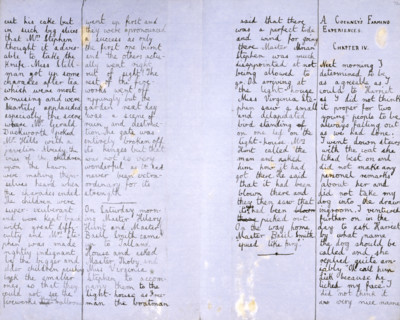 out his cake but
in such big slices
that Mrs Stephen
thought it advis-
able to take the
knife. Miss Hill-
man got up some
charades after tea
which were most
amusing and were
heartily applauded
especially the scene
where Mr Gerald
Duckworth poked
Mr Hills with a
The children were
super
when the charades ended.
on the lawn
were making them-
selves heard
and were kept back
with great diffi-
culty and Mrs Ste-
phen was made
mightily indignant
by the bigger and
older children pushing
back the smaller
ones, so that they
could not see the
fireworks
went up first and
they were pronounced
a success as only
the first one burnt
and the others actu-
ally went right
out of sight! The
rest of the fire-
works went off
rippingly but the
garden next day
bore a scene of
ruin and destruc-
tion. The gate was
entirely broken off
its hinges but this
was not so very
wonderful as it had
never been extra-
ordinary for its
strength.
On Saturday morn-
ing Master Hilary
Hunt and Master
Basil Smith came
up to Talland
House and asked
Master Thoby and
Miss Virginia
Stephen to accom-
pany them to the
light-house as Free-
man the boatman
said that there
was a perfect tide
and wind for going
there. Master Adrian
Stephen was much
disappointed at not
being allowed to
go. On arriving at
the light-house
Miss Virginia Ste-
phen saw a small
and dilapidated
bird standing
on one leg on the
light-house. Mrs
Hunt called the
man and asked
him how it had
got there. He said
that it had been
blown there and
they then saw that
its
had been
picked out.
On the way home
Master Basil Smith
"spued like fury".
A COCKNEY'S FARMING
EXPERIENCES.
CHAPTER IV.
Next morning I
determined to be
as agreeable as I
could to Harriet
as I did not think
it proper for two
young people to be
always falling out
as we had done.
I went down stairs
with the coat she
liked best on and
did not make any
personal remarks
about her and
did not take my
dog into the draw-
ing room. I ventured
later on in the
day to ask Harriet
by what name
the dog should be
called and she
replied quite am-
iably "Oh call him
Lick because he
licked my face." I
did not think it
a very nice name